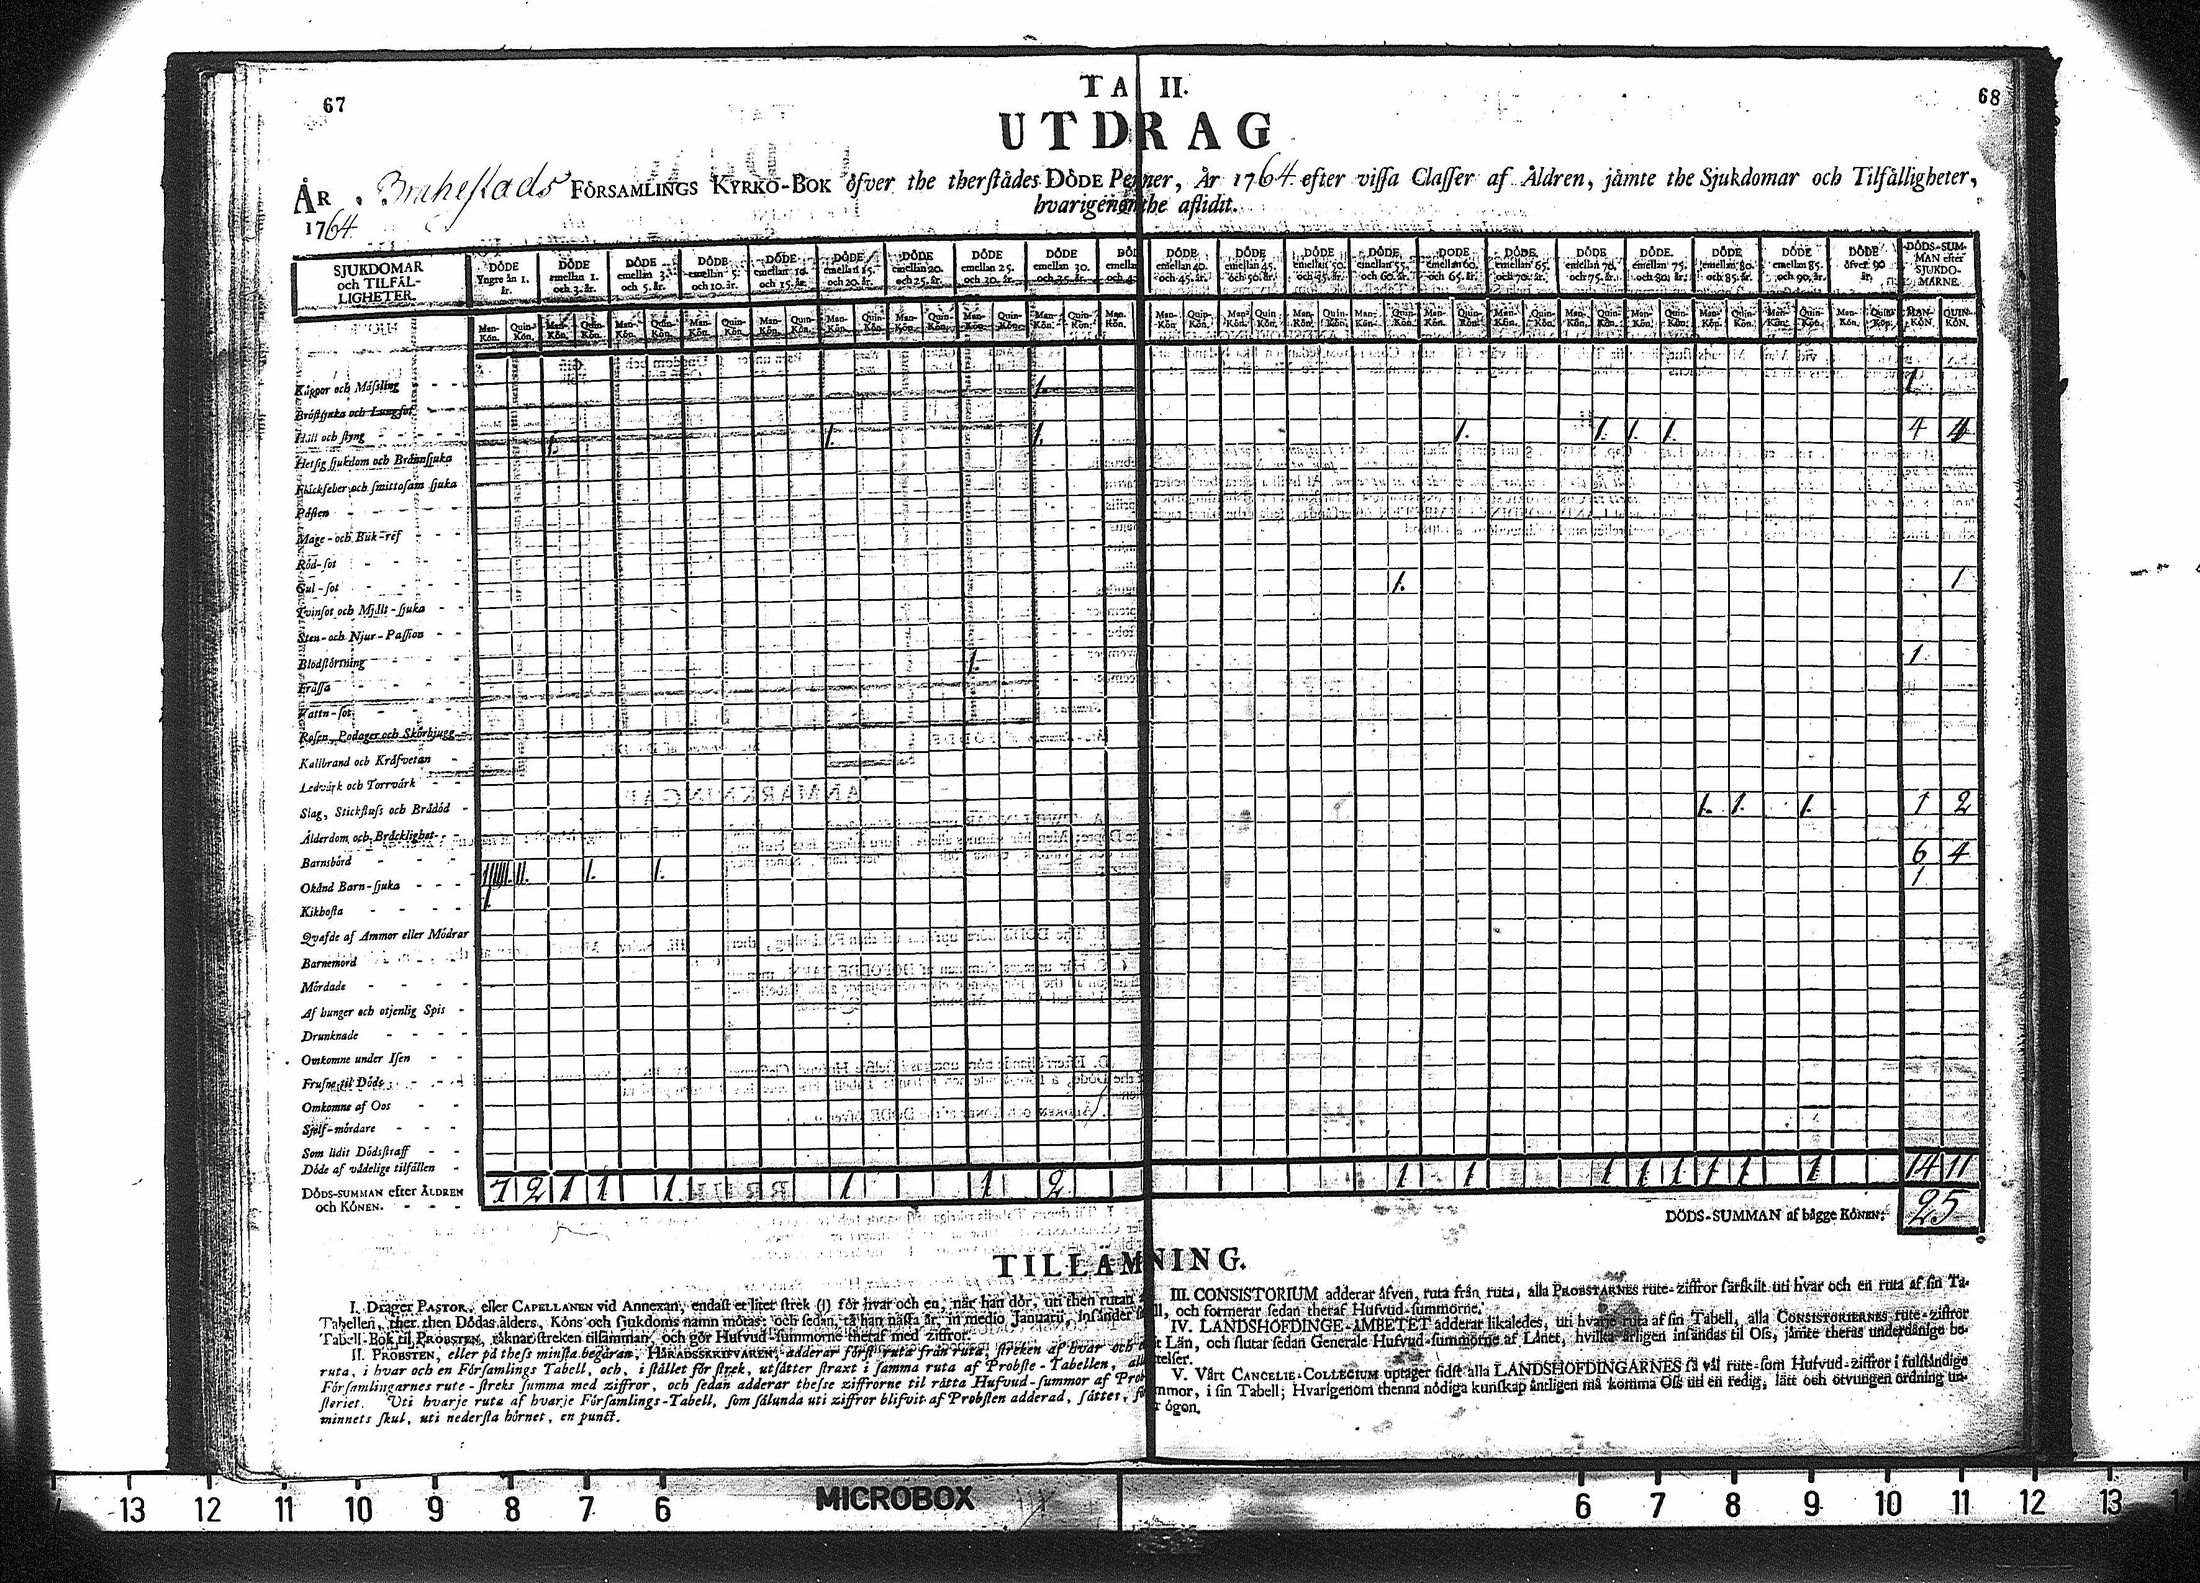 67
68
TA II.
UTDRAG
ÅR 1764. Brahestads FÖRSAMLINGS KYRKO-BOK öfver the therstädes DÖDE Per ner, År 1764 efter vissa Classer af Åldren, jämte the Sjukdomar och Tilfälligheter,
hvarigenom the aflidit.
SJUKDOMAR och TILFÄL-LIGHETER.
DÖDE Yngre än 1. år.
DÖDE emellan 1. och 3. år.
DÖDE emellan 3. och 5. år.
DÖDE emellan 5. och 10. år.
DÖDE emellan 10. och 15. år.
DÖDE emellan 15. och 20. år.
DÖDE emellan 20. och 25. år.
DÖDE emellan 25. och 30. år.
DÖDE emellan 30. och 35. år.
DÖ emella och 4
DÖDE emellan 40. och 45. år.
DÖDE emellan 45. och 50. år.
DÖDE emellan 50. och 55. år.
DÖDE emellan 55. och 60. år.
DÖDE emellan 60. och 65. år.
DÖDE emellan 65. och 70. år.
DÖDE emellan 70. och 75. år.
DÖDE emellan 75. och 80. år.
DÖDE emellan 80. och 85. år.
DÖDE emellan 85. och 90. år.
DÖDE öfver 90 år.
DÖDS-SUMMAN efter SJUKDOMARNE.
Man-Kön. Quin-Kön. Man-Kön. Quin-Kön. Man-Kön. Quin-Kön. Man-Kön. Quin-Kön. Man-Kön. Quin-Kön. Man-Kön. Quin-Kön. Man-Kön. Quin-Kön. Man-Kön. Quin-Kön. Man-Kön. Quin-Kön. Man-Kön. Man-Kön. Quin-Kön. Man-Kön. Quin-Kön. Man-Kön. Quin-Kön. Man-Kön. Quin-Kön. Man-Kön. Quin-Kön. Man-Kön. Quin-Kön. Man-Kön. Quin-Kön. Man-Kön. Quin-Kön. Man-Kön. Quin-Kön. Man-Kön. Quin-Kön. Man-Kön. Quin-Kön. MAN-KÖN. QUIN-KÖN.
Kåppor och Mäßling 1. 1
Bröstsjuka och Lungsot
Håll och styng 1. 1. 1. 1. 1. 1. 1. 4 4
Hetsig sjukdom och Brännsjuka
Fläckfeber och smittosam sjuka
Pästen
Mage-och Buk-ref
Röd-sot
Gul-sot 1. 1
Tvinsot och Mjält-sjuka
Sten-och Njur-Passion
Blodstörtning 1. 1
Fråssa
Vattn-sot
Rosen, Podager och Skörbjugg
Kallbrand och Kräfvetan
Ledvärk och Torrvärk
Slag, Stickfluss och Brådöd 1. 1. 1. 1 2
Ålderdom och Bräcklighet
Barnsbörd 6 4
Okänd Barn-sjuka 1. 1. 1
Kikhosta
Qvafde af Ammor eller Mödrar
Barnemord
Mördade
Af hunger och otjenlig Spis
Drunknade
Omkomne under Isen
Frusne til Döds
Omkomne af Oos
Sjelf-mördare
Som lidit Dödsstraff
Döde af vådelige tilfällen
DÖDS-SUMMAN efter ÅLDREN och KÖNEN. 7 2 1 1 1 1 1 2 1 1 1 1 1 1 1 1 14 11
DÖDS-SUMMAN af bägge KÖNEN. 25
TILLÄMNING.
I. Drager PASTOR, eller CAPELLANEN vid Annexan, endast et litet strek (1) för hvar och en, när han dör, uti then rutan
Tabellen, ther then Dödas ålders, Köns och sjukdoms namn mötas: och sedan, tå han nästa år, in medio Januarii, insänder
Tabell-Bok til PROBSTEN, räknar streken tillsamman, och gör Hufvud-summorne theraf med ziffror.
II. PROBSTEN, eller på thess minsta begäran, HÄRADSSKRIFVAREN, adderar först ruta från ruta, streken af hvar och
ruta, i hvar och en Församlings Tabell, och, i stället för strek, utsätter straxt i samma ruta af Probste-Tabellen, all
Församlingarnes rute-streks summa med ziffror, och sedan adderar thesse ziffrorne til rätta Hufvud-summor af Prob
steriet. Uti hvarje ruta af hvarje Församlings-Tabell, som sålunda uti ziffror blifvit af Probsten adderad, sättes, f
minnets skul, uti nedersta hörnet, en punct.
III. CONSISTORIUM adderar äfven, ruta från ruta, alla PROBSTARNES rute-ziffror särskilt uti hvar och en ruta af sin Ta-
ll, och formerar sedan theraf Hufvud-summorne.
IV. LANDSHÖFDINGE-ÄMBETET adderar likaledes, uti hvarje ruta af sin Tabell, alla CONSISTORIERNES rute-ziffror
Län, och slutar sedan Generale Hufvud-summorne af Länet, hvilka årligen insändas til Oss, jämte theras underdånige be-
relser.
V. Vårt CANCELIE-COLLEGIUM uptager sidst alla LANDSHÖFDINGARNES så väl rute-som Hufvud-ziffror i fulständige
mmor, i sin Tabell; Hvarigenom thenna nödiga kunskap äntligen må komma Oss uti en redig, lätt och otvungen ordning un-
r ögon.
13 12 11 10 9 8 7 6 MICROBOX 6 7 8 9 10 11 12 13